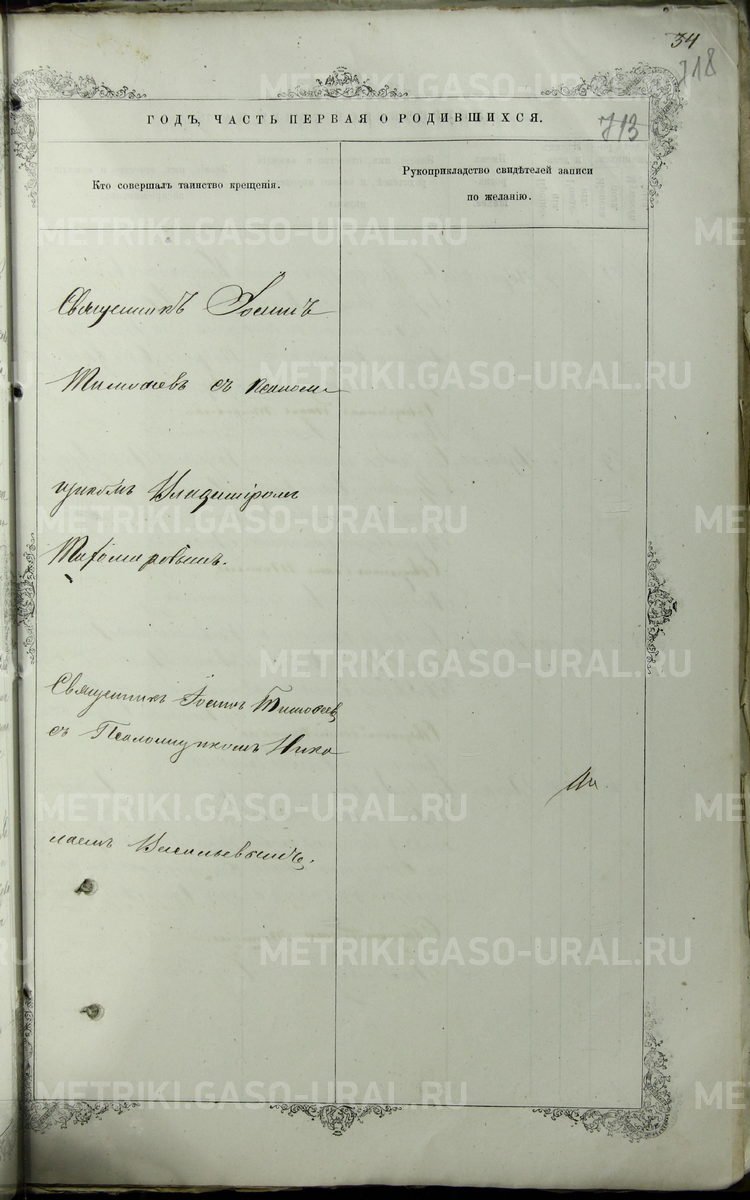 34
718
ГОДЪ, ЧАСТЬ ПЕРВАЯ О РОДИВШИХСЯ.
713
Кто совершалъ таинство крещенія.
Рукоприкладство свидѣтелей записи
по желанію.
Священникъ Іоаннъ
Тимофеевъ съ псалом-
щикомъ Владиміромъ
Тихомировымъ.
Священникъ Іоаннъ Тимофеевъ
съ Псаломщикомъ Нико
лаемъ Васильевымъ.
METRIKI.GASO-URAL.RU